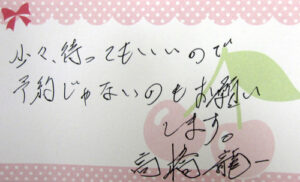 少々、待ってもいいので
予約じゃないのもお願い
します。
高橋龍一